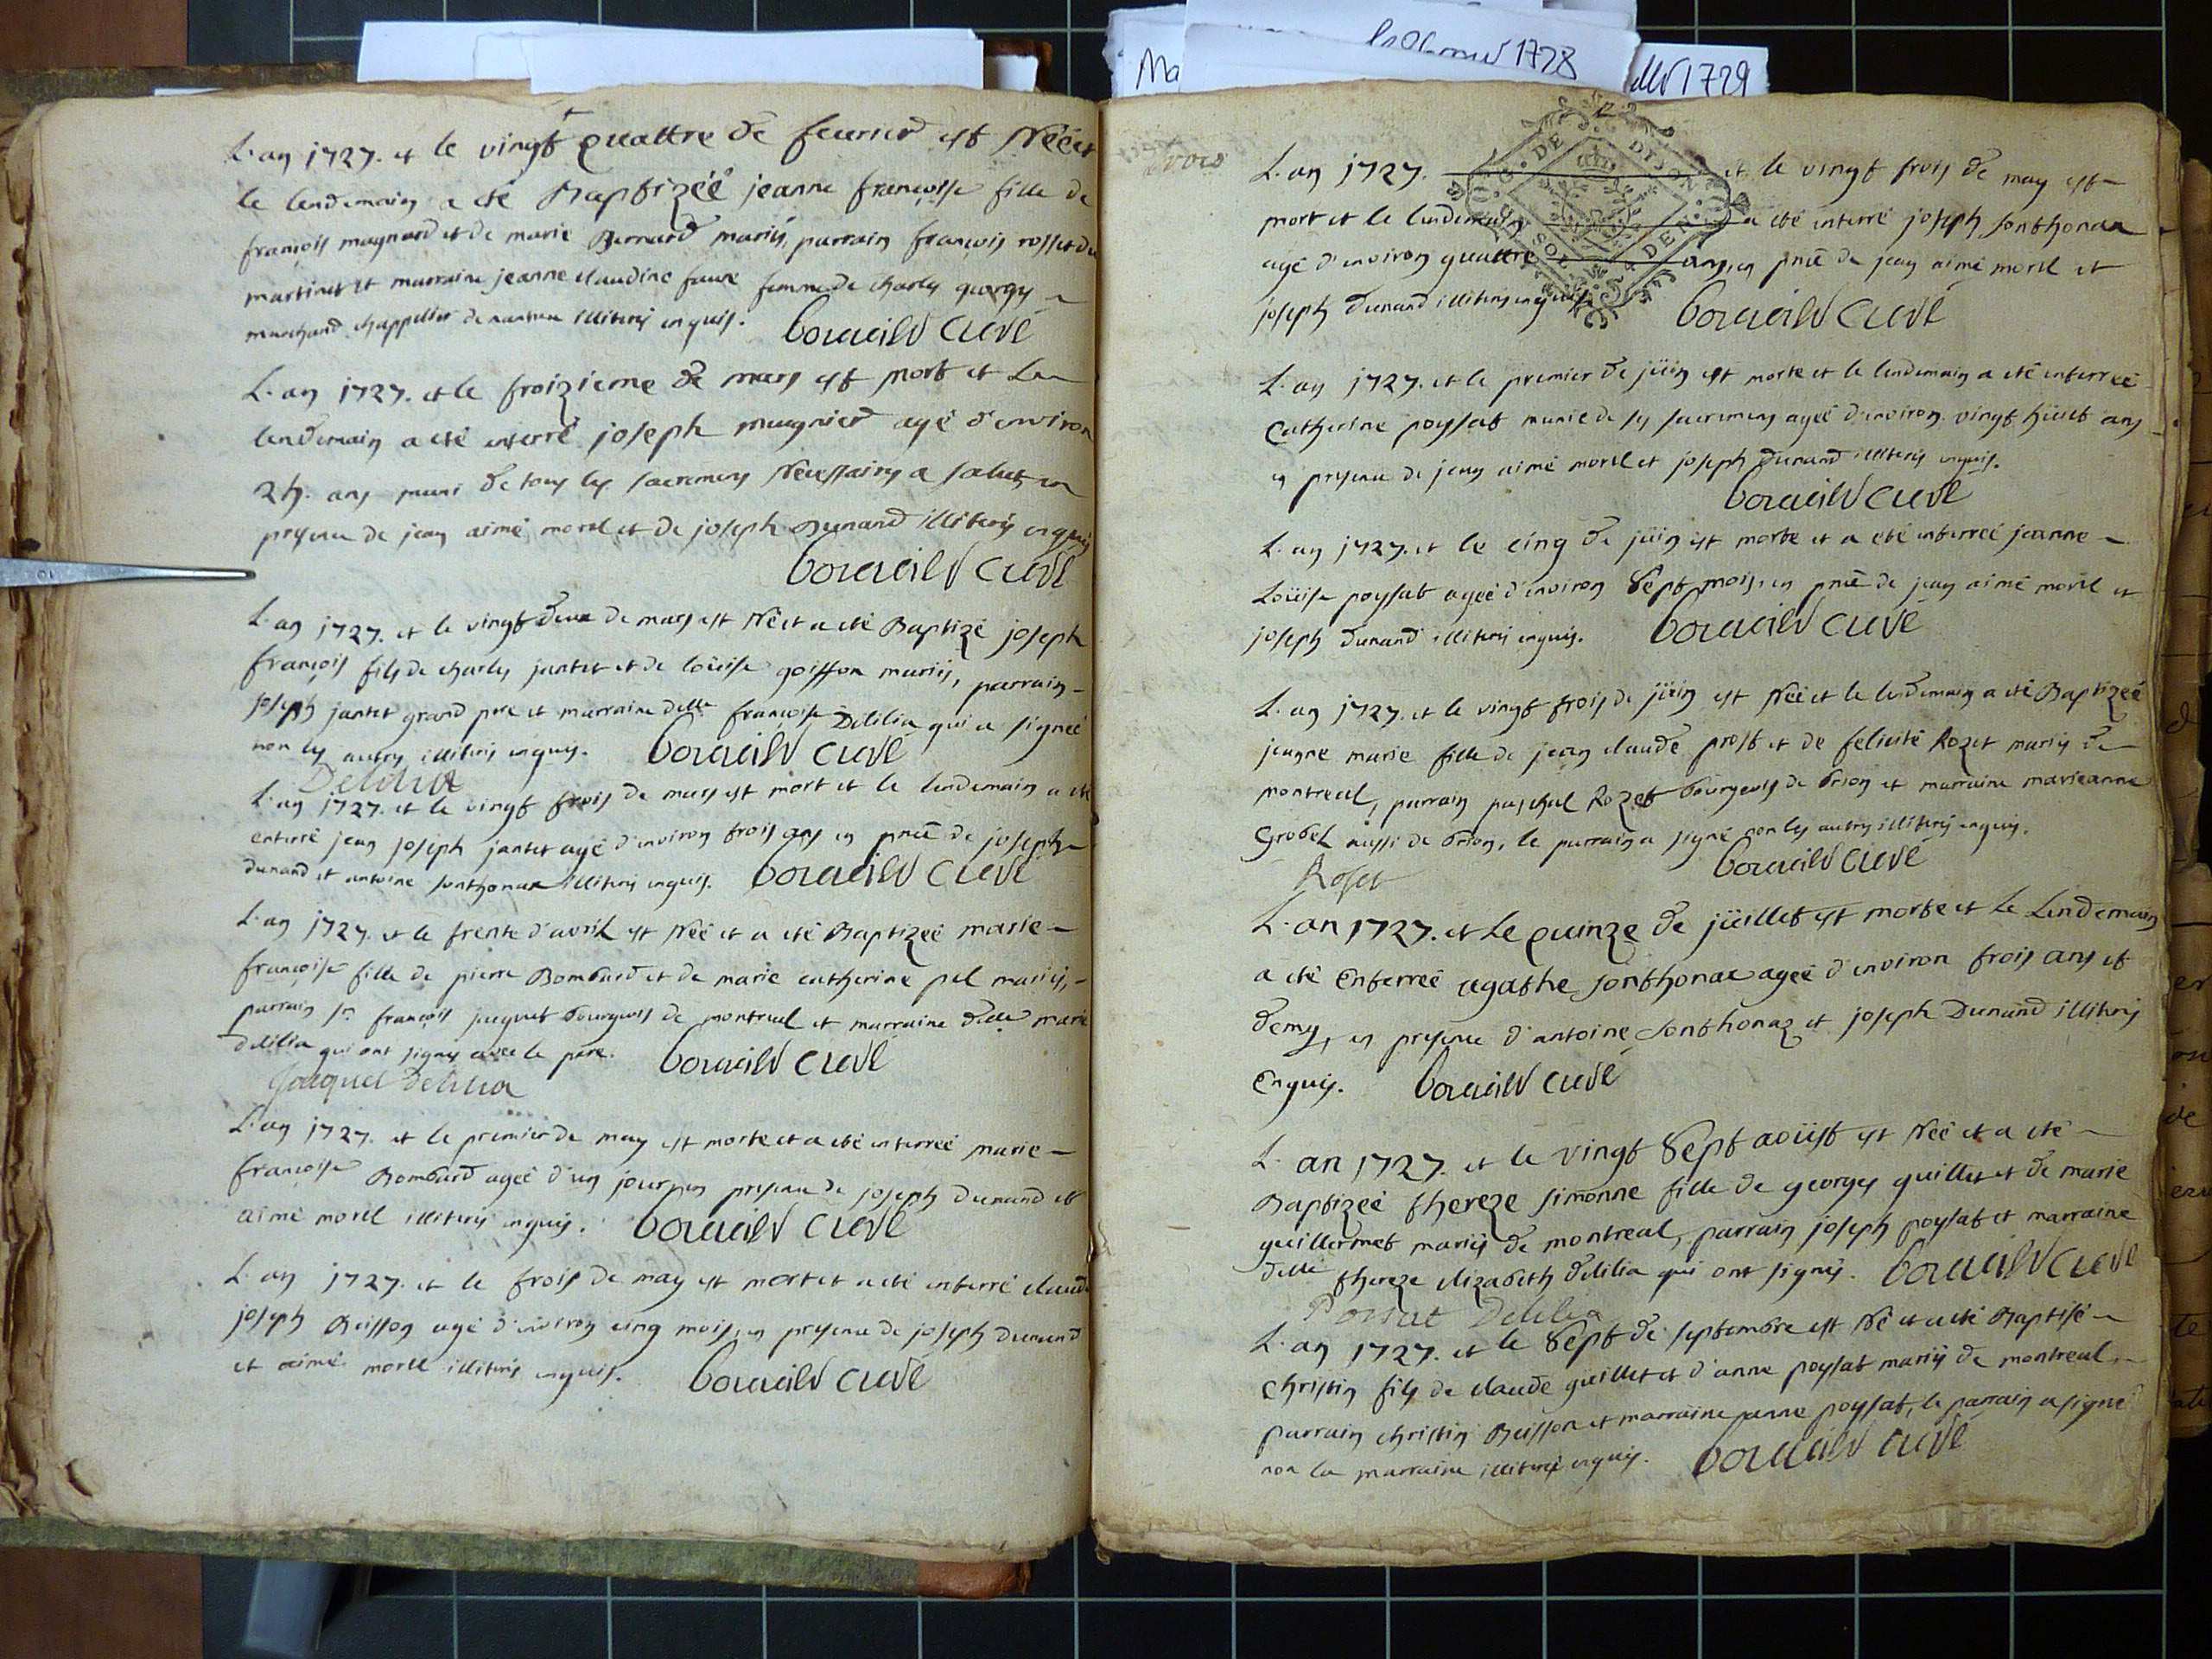 L'an 1727. et le vingt quattre de feurier est Néé et
le lendemain a eté Baptizéé jeanne françoise fille de
françois maynard et de marie Bernard mariés, parrain françois rosset de
martinet et marraine jeanne claudine faure femme de charles georges
marchand chappellier de nantua illiterés enquis. curé
L'an 1727. et le troizieme de mars est mort et Le
lendemain a eté enterré joseph mugnier agé d'environ
ans muni de tous les sacremens Nécessaires a salut, en
presence de jean aimé morel et de joseph Dunand illiterés enquis
curé
L'an 1727. et le vingt deux de mars est Né et a eté Baptizé joseph
françois fils de charles jantet et de loüise goiffon mariés, parrain
joseph jantet grand pere et marraine delle françoise Delilia qui a signéé
non les autres illiterés enquis. curé
Delilia
L'an 1727. et le vingt trois de mars est mort et le lendemain a eté
enterré jean joseph jantet agé d'environ trois ans en pnce de joseph
dunand et antoine sonthonax illiterés enquis. curé
L'an 1727. et le trente d'avril est Néé et a eté Baptizéé marie
françoise fille de pierre Bombard et de marie catherine pel mariés,
parrain sr. françois jacquet bourgeois de montreal et marraine delle marie
delilia qui ont signés avec le pere. curé
Jacquet Delilia
L'an 1727. et le premier de may est morte et a eté enterréé marie
françoise Bombard agéé d'un jour, en presence de joseph dunand et
aimé morel illiterés enquis. curé
L'an 1727. et le trois de may est mort et a eté enterré claude
joseph Buisson agé d'environ cinq mois, en presence de joseph dunand
et aimé morel illiterés enquis. curé
1728
1729
Ma
DE DIJON
L'an 1727. et le vingt trois de may est
mort et le lendemain a eté enterré joseph sonthonax
agé d'environ quattre ans, en pnce de jean aimé morel et
joseph dunand illiterés enquis. curé
L'an 1727. et le premier de jüin est morte et le lendemain a eté enterréé
Catherine poysat munie de ses sacremens agéé d'environ vingt hüict ans
en presence de jean aimé morel et joseph dunand illiterés enquis.
curé
L'an 1727. et le cinq de jüin est morte et a eté enterréé jeanne
Loüise poysat agéé d'environ sept mois, en pnce de jean aimé morel et
joseph dunand illiterés enquis. curé
L'an 1727. et le vingt trois de jüin est Néé et le lendemain a eté Baptizéé
jeanne marie fille de jean claude prost et de felicité Rozet mariés de
montreal, parrain paschal Rozet bourgeois de brion et marraine marieanne
Grobel aussi de brion, le parrain a signé non les autres illiterés enquis.
Roset curé
L'an 1727. et Le quinze de jüillet est morte et Le Lendemain
a eté Enterréé agathe sonthonax agéé d'environ trois ans et
demy, en presence d'antoine sonthonax et joseph Dunand illiterés
Enquis. curé
L'an 1727. et le vingt sept aoüst est Néé et a eté
Baptizéé thereze simonne fille de georges guillet et de marie
guillermet mariés de montreal, parrain joseph poysat et marraine
delle thereze elizabeth delilia qui ont signés. curé
Delilia
L'an 1727. et le sept de septembre est Né et a eté Baptisé
christin fils de claude guillet et d'anne poysat mariés de montreal,
parrain christin Buisson et marraine anne poysat, le parrain a signé
non la marraine illiteréé enquis. curé